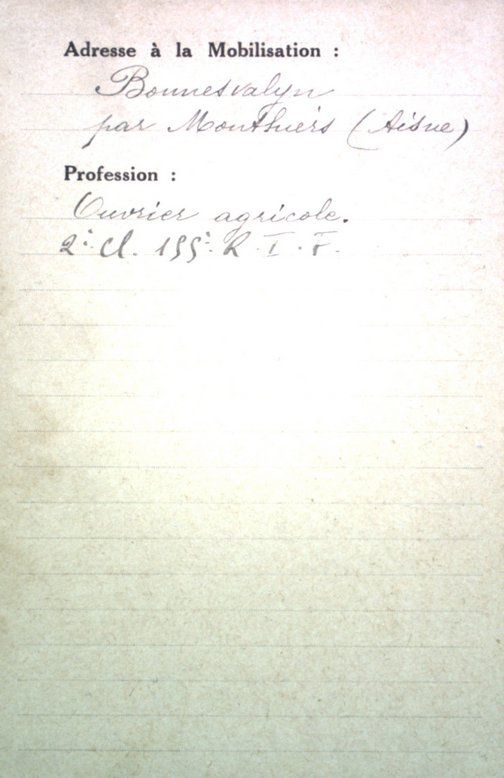 Adresse à la Mobilisation :
Bonnesvalyn
par Monthiers (Aisne)
Profession :
Ouvrier agricole.
2e Cl. 155e R. I. F.